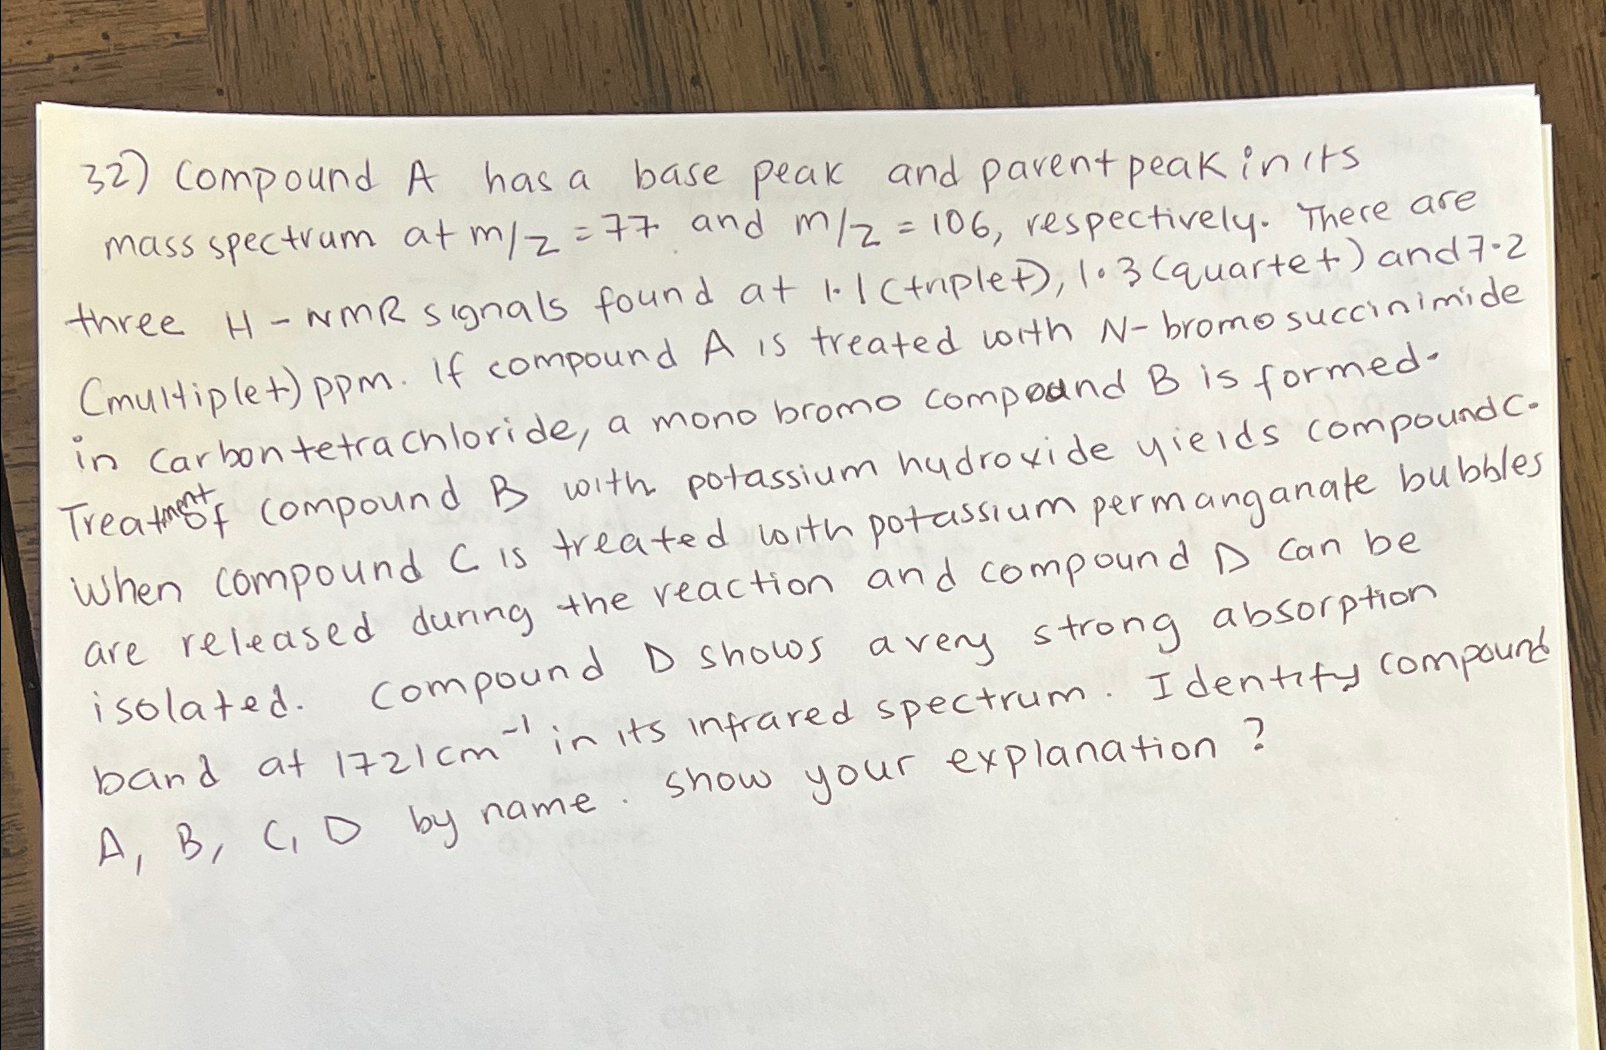 32) Compound A has a base peak and parent peak in its
mass spectrum at m/z = 77 and m/z = 106, respectively. There are
three H-NMR signals found at 1.1 (triplet), 1.3 (quartet) and 7.2
(multiplet) ppm. If compound A is treated with N-bromosuccinimide
in carbontetrachloride, a mono bromo compound B is formed.
Treatment of compound B with potassium hydroxide yields compound C.
When compound C is treated with potassium permanganate bubbles
are released during the reaction and compound D can be
isolated. Compound D shows a very strong absorption
band at 1721 cm⁻¹ in its infrared spectrum. Identify compound
A, B, C, D by name. Show your explanation?